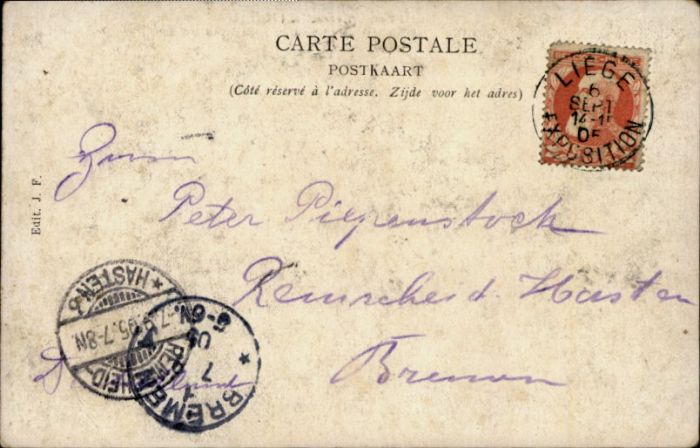 CARTE POSTALE
POSTKAART
(Côté réservé à l'adresse. Zijde voor het adres)
LIÉGE
6
SEPT
14-15
05
EXPOSITION
Edit. J. F.
Herrn
Peter Piepenstock
Remscheid-Hasten
Bremen
HASTEN
7.9.05.7-8N.
REMSCHEID
BREMEN
7
05
5-6N.